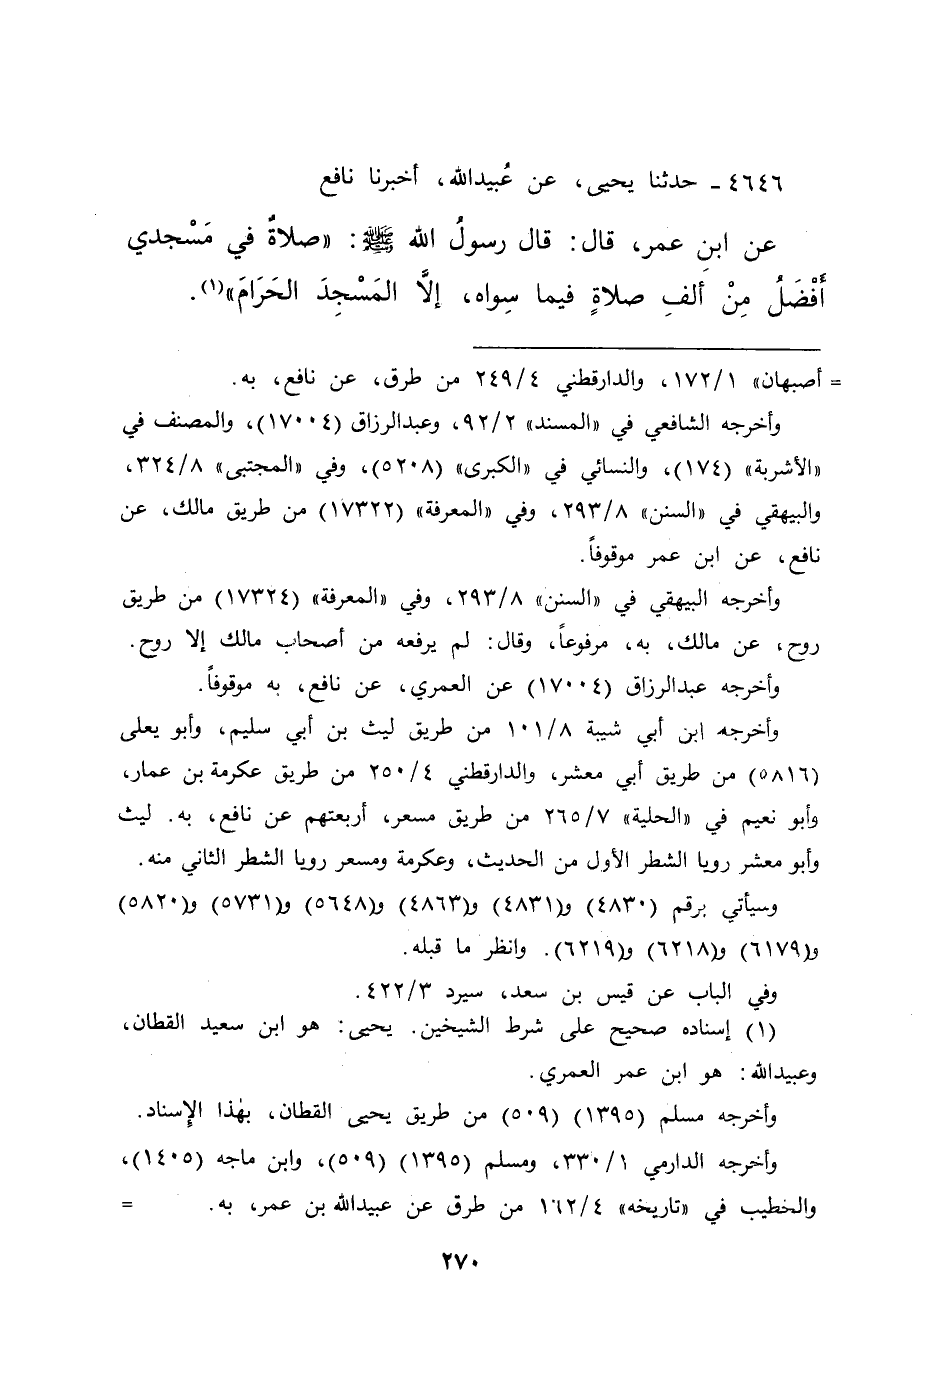 ٤٦٤٦ - حدثنا يحيى، عن عُبيدالله، أخبرنا نافع
عن ابنِ عمر، قال: قال رسولُ الله ﷺ: «صلاةٌ في مَسْجدي
أَفْضَلُ مِنْ ألفِ صلاةٍ فيما سِواه، إلَّا المَسْجِدَ الحَرَامَ»(١).
= أصبهان» ١٧٢/١، والدارقطني ٢٤٩/٤ من طرق، عن نافع، به.
وأخرجه الشافعي في «المسند» ٩٢/٢، وعبدالرزاق (١٧٠٠٤)، والمصنف في
«الأشربة» (١٧٤)، والنسائي في «الكبرى» (٥٢٠٨)، وفي «المجتبى» ٣٢٤/٨،
والبيهقي في «السنن» ٢٩٣/٨، وفي «المعرفة» (١٧٣٢٢) من طريق مالك، عن
نافع، عن ابن عمر موقوفاً.
وأخرجه البيهقي في «السنن» ٢٩٣/٨، وفي «المعرفة» (١٧٣٢٤) من طريق
روح، عن مالك، به، مرفوعاً، وقال: لم يرفعه من أصحاب مالك إلا روح.
وأخرجه عبدالرزاق (١٧٠٠٤) عن العمري، عن نافع، به موقوفاً.
وأخرجه ابن أبي شيبة ١٠١/٨ من طريق ليث بن أبي سليم، وأبو يعلى
(٥٨١٦) من طريق أبي معشر، والدارقطني ٢٥٠/٤ من طريق عكرمة بن عمار،
وأبو نعيم في «الحلية» ٢٦٥/٧ من طريق مسعر، أربعتهم عن نافع، به. ليث
وأبو معشر رويا الشطر الأول من الحديث، وعكرمة ومسعر رويا الشطر الثاني منه.
وسيأتي برقم (٤٨٣٠) و(٤٨٣١) و(٤٨٦٣) و(٥٦٤٨) و(٥٧٣١) و(٥٨٢٠)
و(٦١٧٩) و(٦٢١٨) و(٦٢١٩). وانظر ما قبله.
وفي الباب عن قيس بن سعد، سيرد ٤٢٢/٣.
(١) إسناده صحيح على شرط الشيخين. يحيى: هو ابن سعيد القطان،
وعبيدالله: هو ابن عمر العمري.
وأخرجه مسلم (١٣٩٥) (٥٠٩) من طريق يحيى القطان، بهٰذا الإسناد.
وأخرجه الدارمي ٣٣٠/١، ومسلم (١٣٩٥) (٥٠٩)، وابن ماجه (١٤٠٥)،
والخطيب في «تاريخه» ١٦٢/٤ من طرق عن عبيدالله بن عمر، به. =
٢٧٠